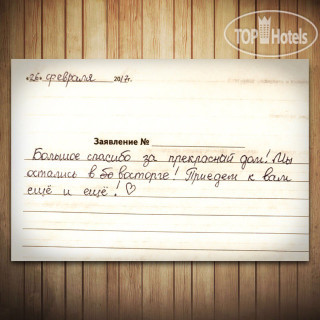 TOP Hotels
«26» февраля 2017г.
Заявление №
Большое спасибо за прекрасный дом! Мы
остались в восторге! Приедем к вам
ещё и ещё! ♡